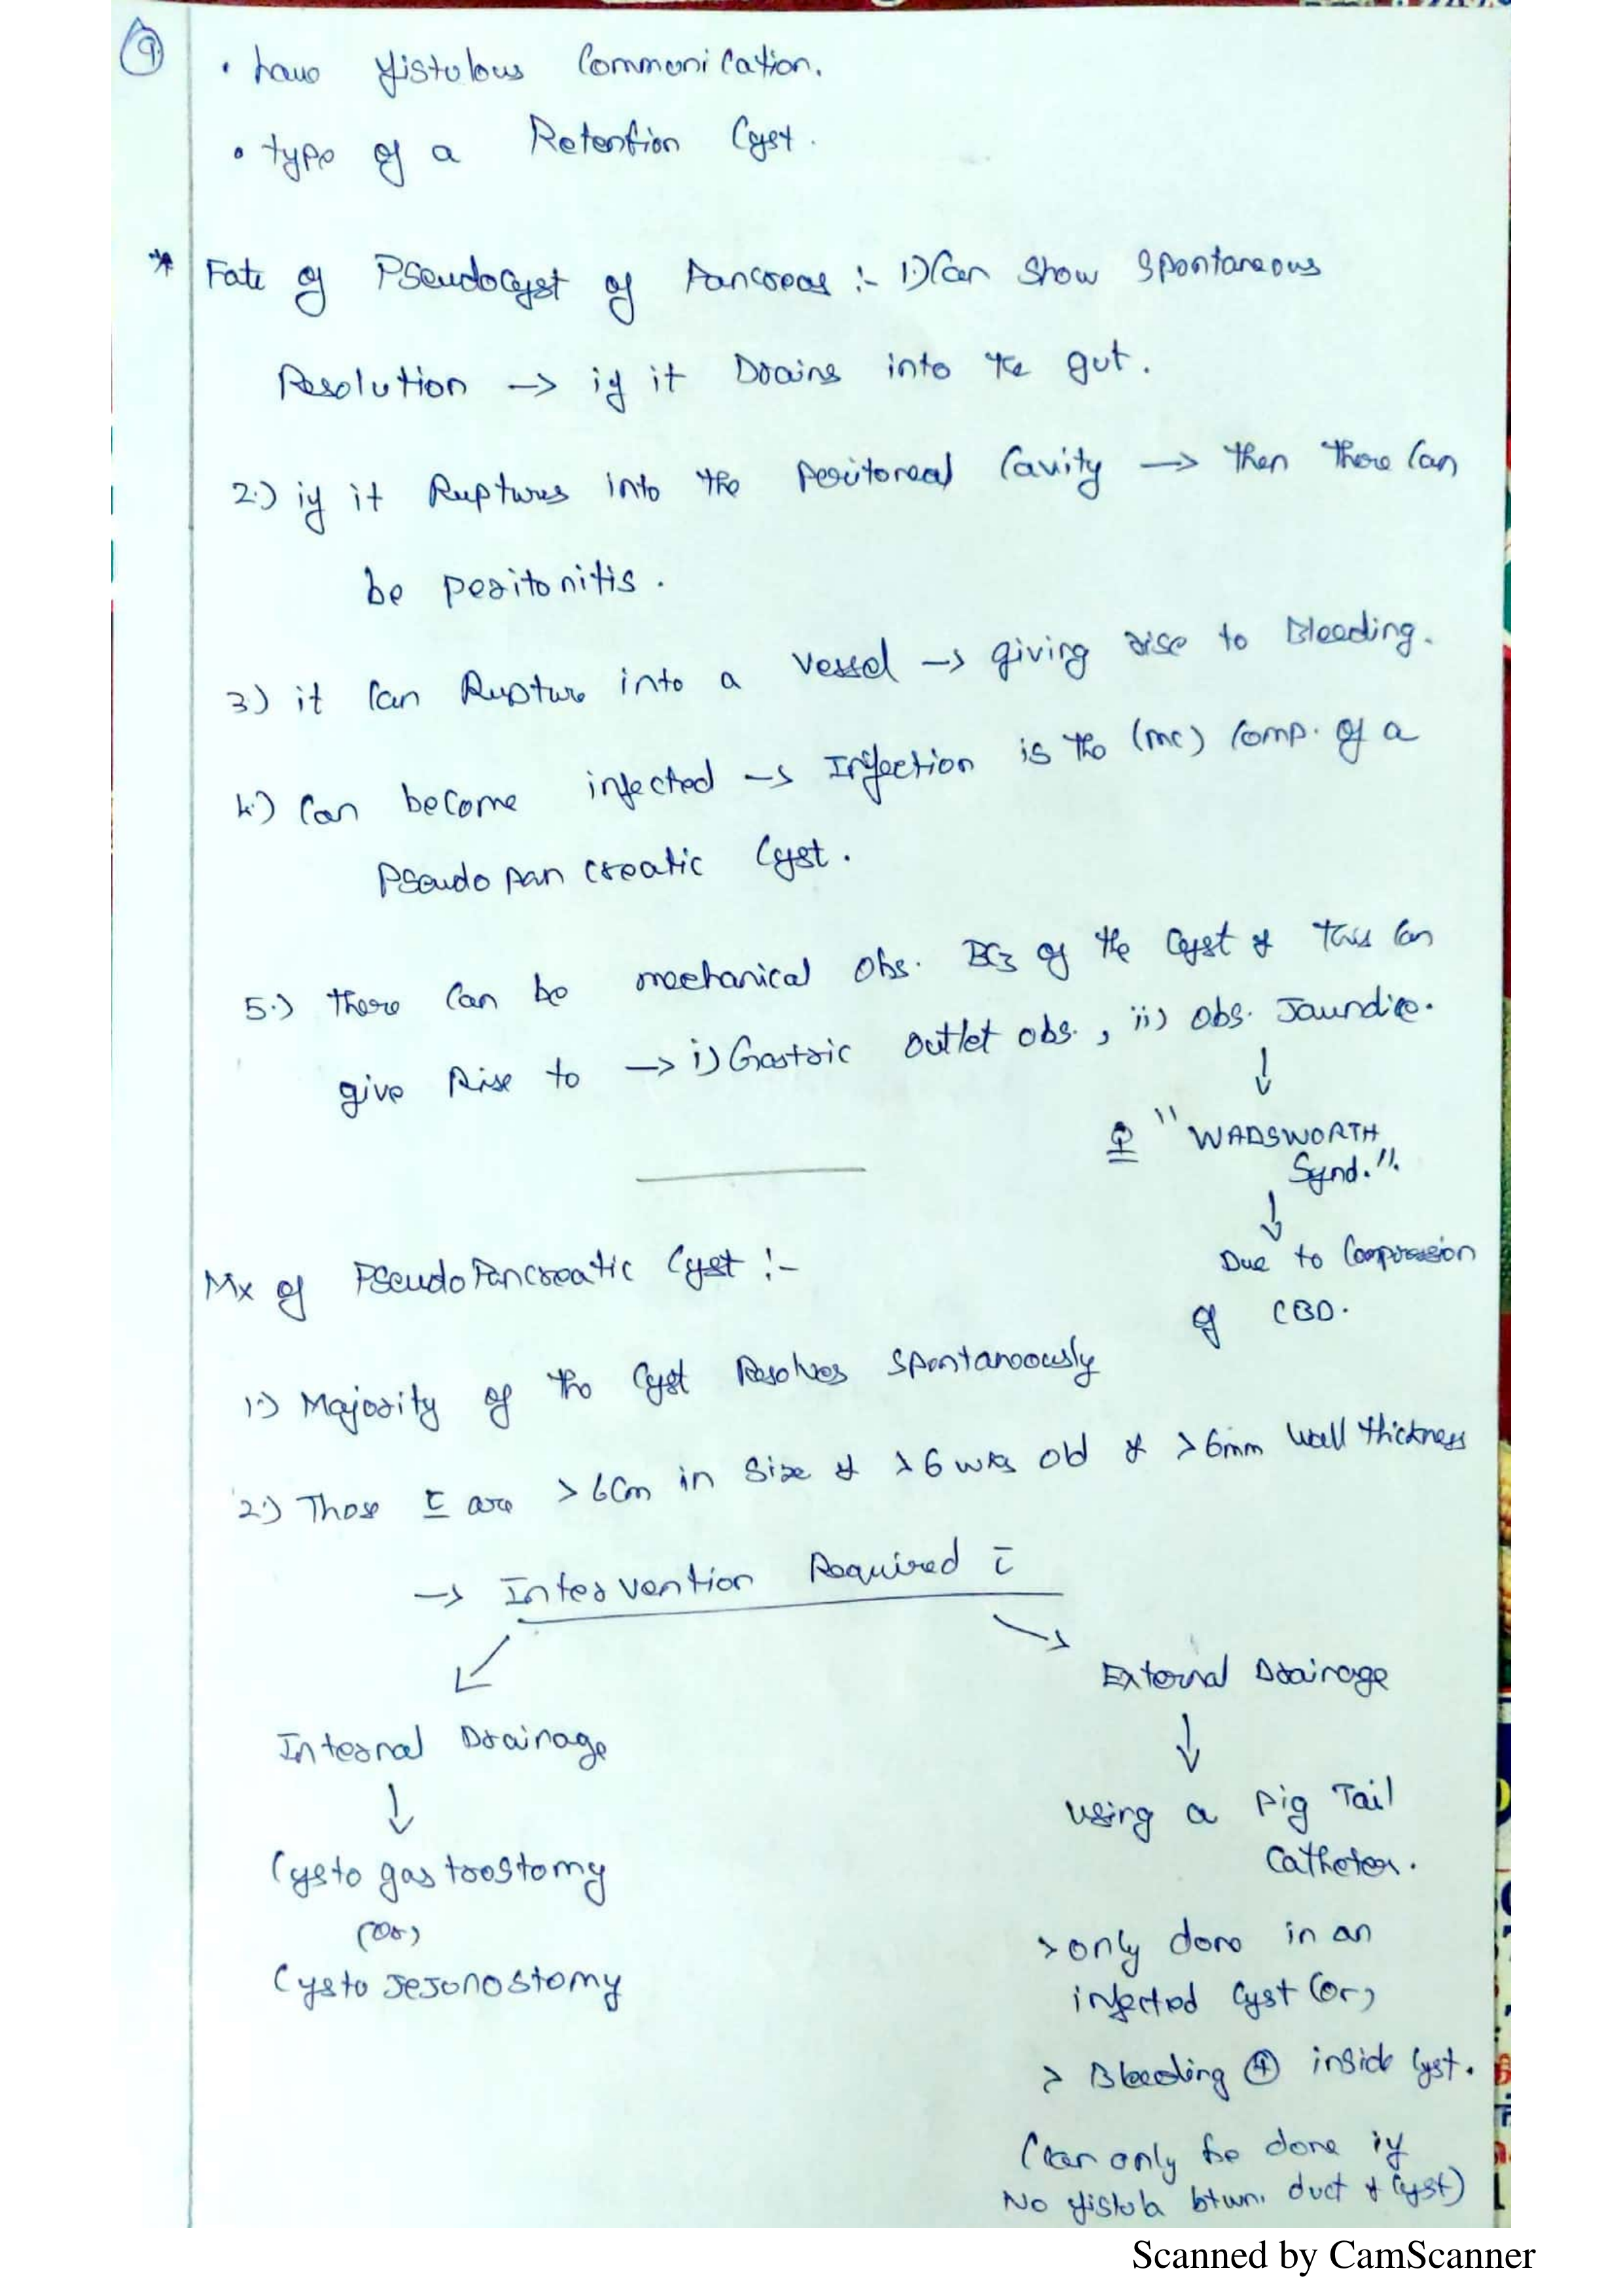 9
• have fistulous Communication.
• type of a Retention Cyst.
* Fate of Pseudocyst of Pancreas :- 1.) Can Show Spontaneous
Resolution → if it Drains into the gut.
2.) if it Ruptures into the Peritoneal Cavity → then there Can
be peritonitis.
3) it Can Rupture into a Vessel → giving rise to Bleeding.
4.) Can become infected → Infection is the (mc) Comp. of a
Pseudo pancreatic Cyst.
5.) there Can be mechanical Obs. BCz of the Cyst & this Can
give Rise to → i) Gastric outlet obs., ii) Obs. Jaundice.
↓
"WADSWORTH
Synd."
↓
Due to Compression
of CBD.
Mx of Pseudo Pancreatic Cyst :-
1.) Majority of the Cyst Resolves Spontaneously
2.) Those c̄ are >6Cm in Size & >6 wks old & >6mm Wall thickness
→ Intervention Required c̄
Internal Drainage
↓
Cysto gastrostomy
(or)
Cysto Jejunostomy
External Drainage
↓
using a Pig Tail
Catheter.
> only done in an
infected Cyst (or)
> Bleeding ⊕ inside Cyst.
(Can only be done if
No fistula btwn. duct & Cyst)
Scanned by CamScanner